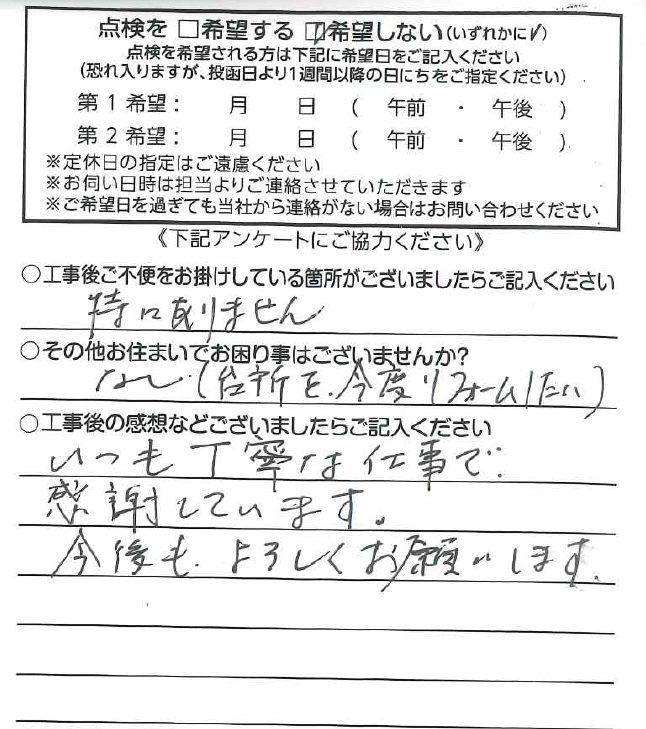 点検を □希望する ☑希望しない(いずれかに✓)
点検を希望される方は下記に希望日をご記入ください
(恐れ入りますが、投函日より1週間以降の日にちをご指定ください)
第1希望: 月 日 ( 午前 ・ 午後 )
第2希望: 月 日 ( 午前 ・ 午後 )
※定休日の指定はご遠慮ください
※お伺い日時は担当よりご連絡させていただきます
※ご希望日を過ぎても当社から連絡がない場合はお問い合わせください
《下記アンケートにご協力ください》
○工事後ご不便をお掛けしている箇所がございましたらご記入ください
特にありません
○その他お住まいでお困り事はございませんか?
なし.(台所を、今度リフォームしたい)
○工事後の感想などございましたらご記入ください
いつも丁寧な仕事で
感謝しています。
今後も よろしくお願いします。